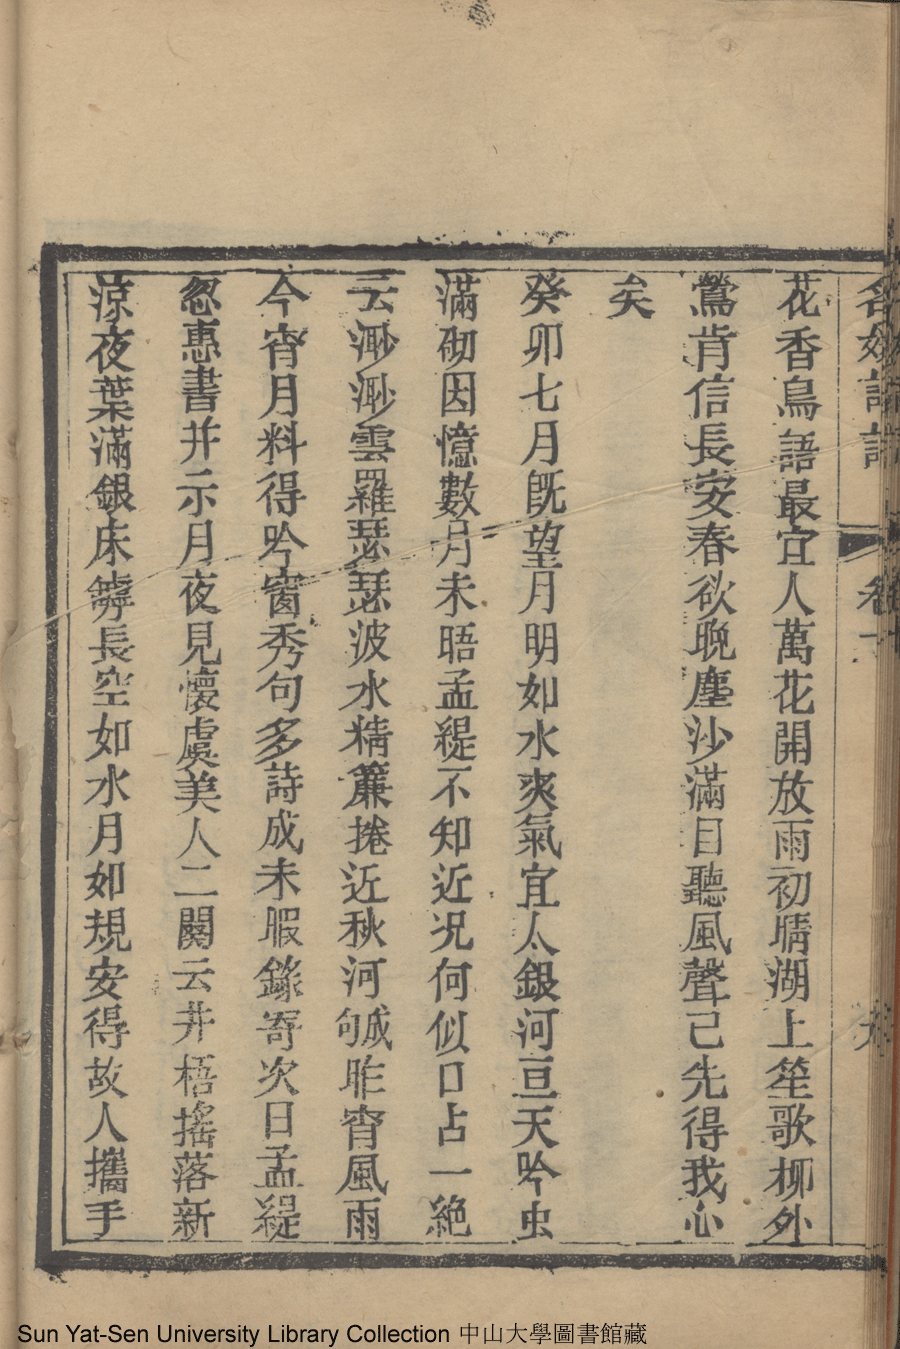 名媛詩話 卷十 九
花香鳥語最宜人萬花開放雨初晴湖上笙歌柳外
鶯肯信長安春欲晚塵沙滿目聽風聲已先得我心
矣
癸卯七月既望月明如水爽氣宜人銀河亘天吟虫
滿砌因憶數月未晤孟緹不知近況何似口占一絶
云渺渺雲羅瑟瑟波水精簾捲近秋河 昨宵風雨
今宵月料得吟窗秀句多詩成未暇錄寄次日孟緹
忽惠書并示月夜見懷虞美人二闋云井梧搖落新
涼夜葉滿銀床罅長空如水月如規安得故人攜手
Sun Yat-Sen University Library Collection 中山大學圖書館藏